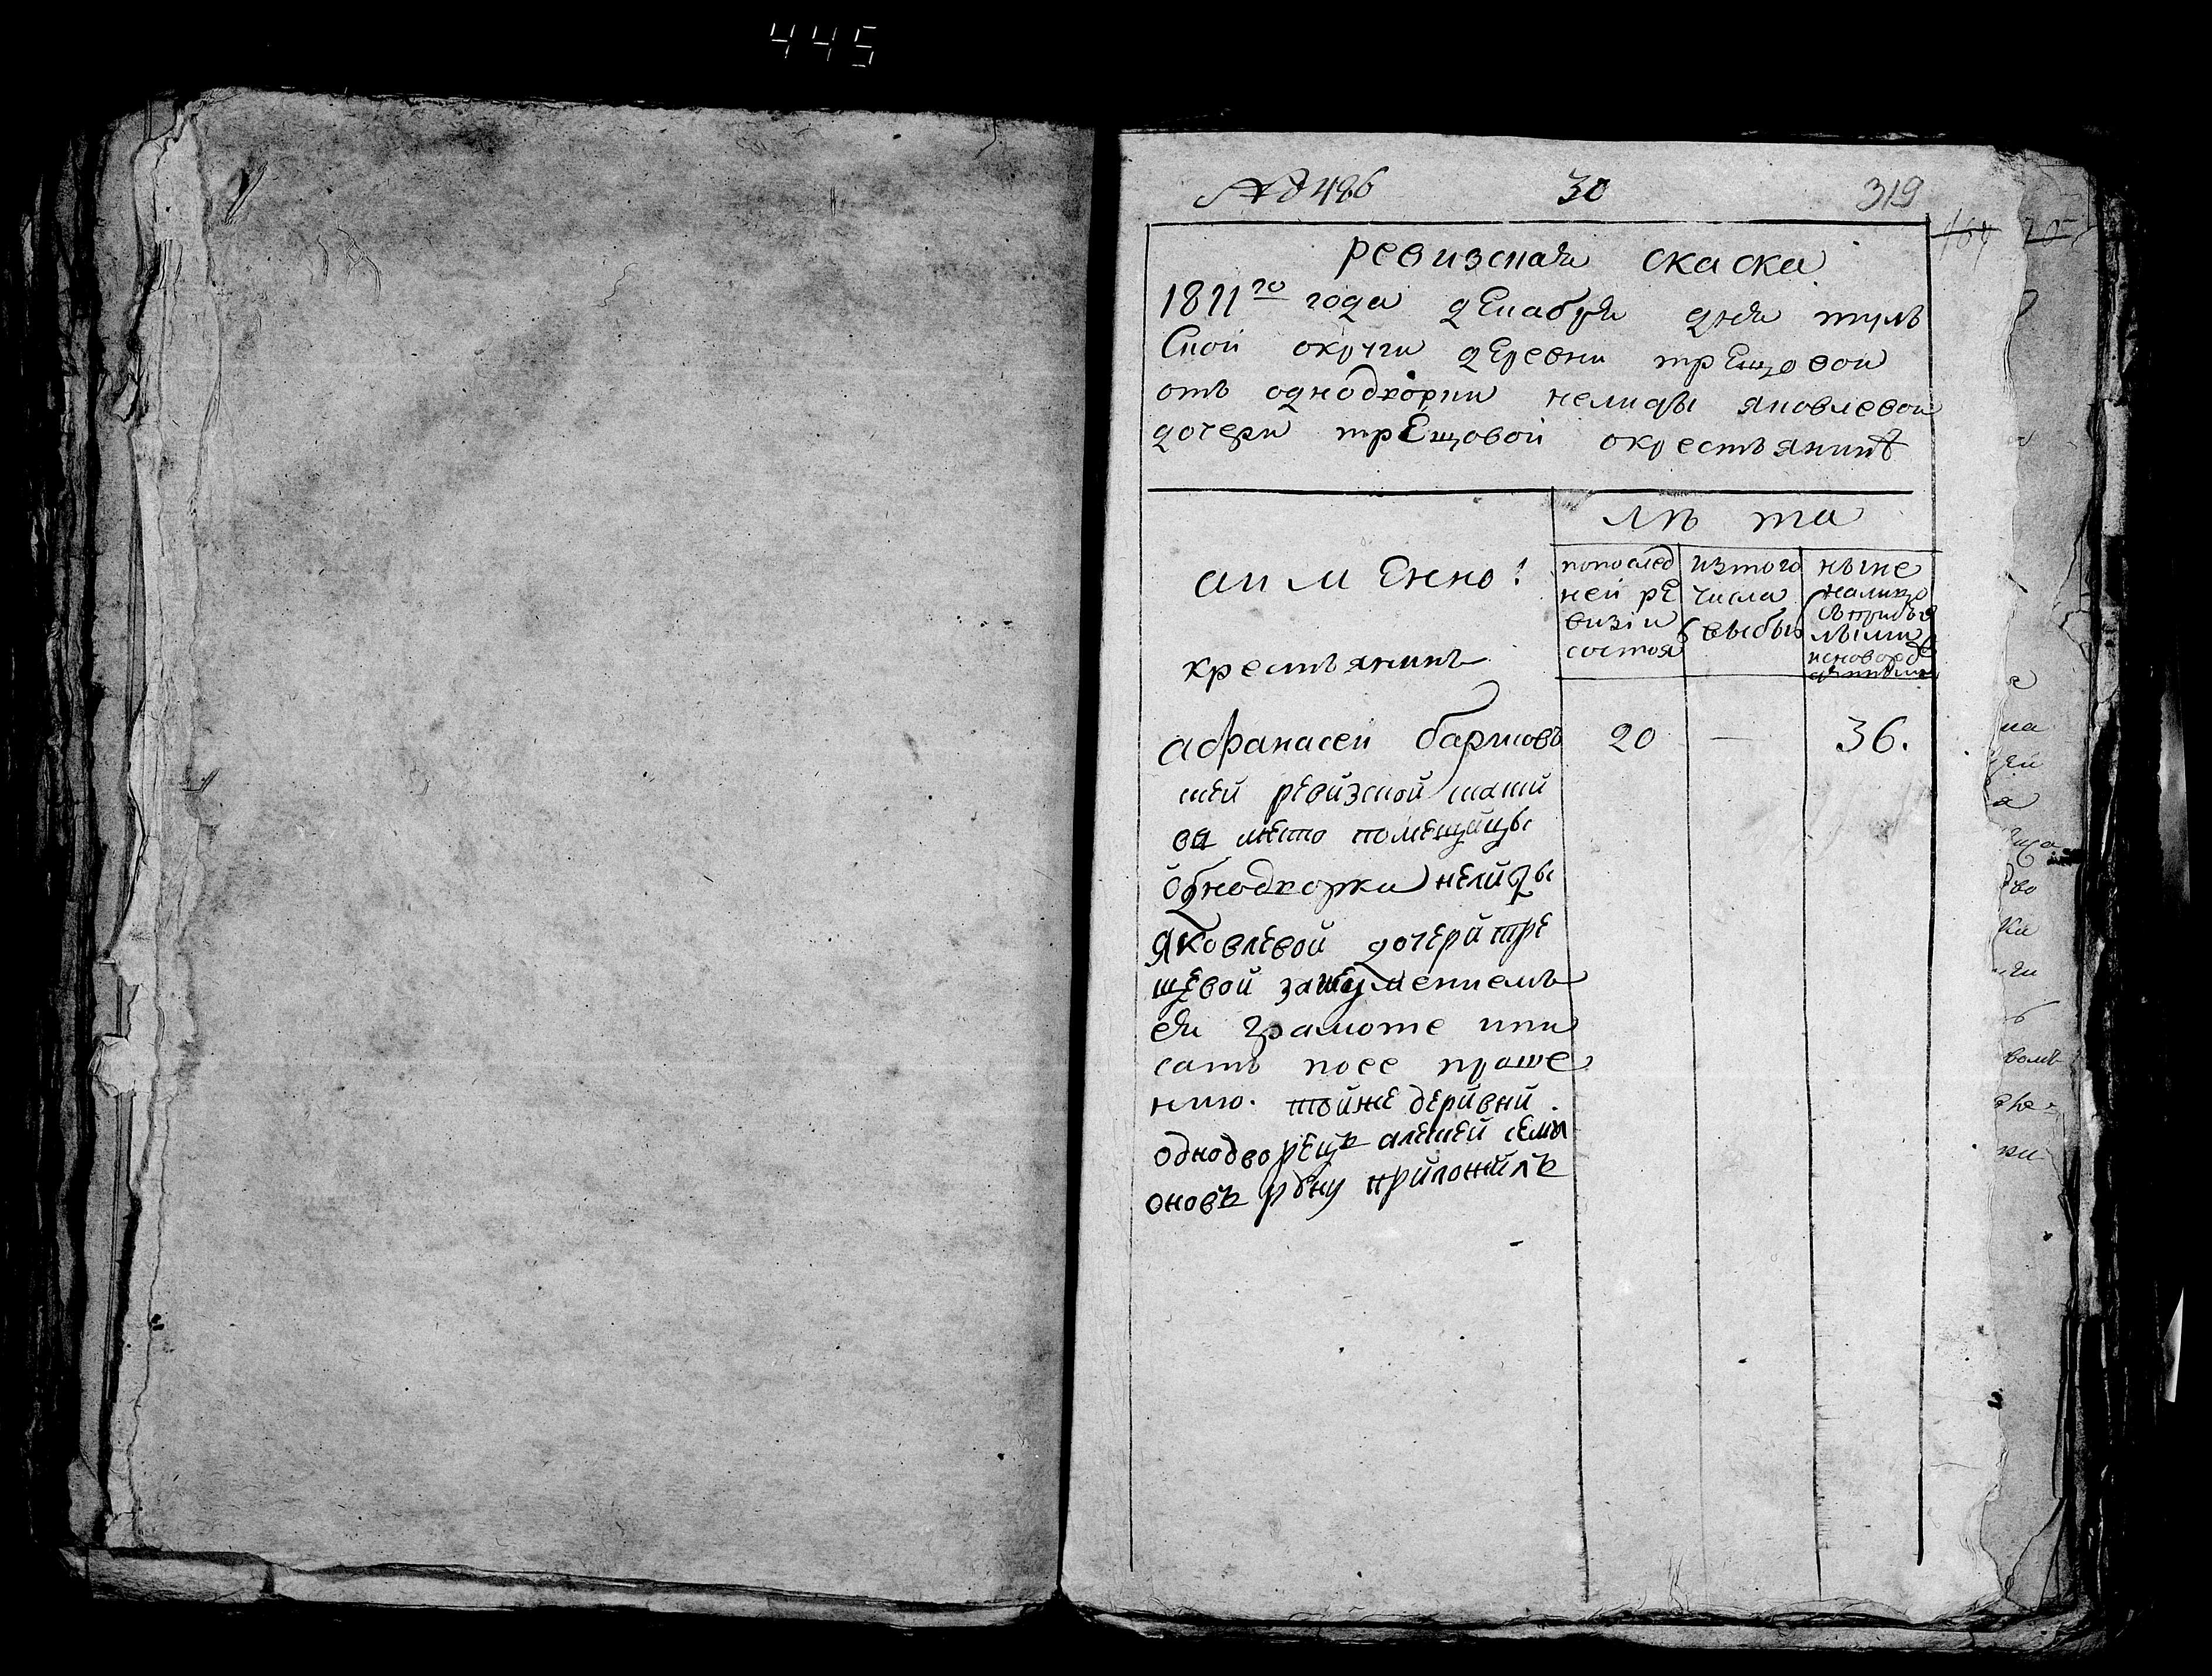 445
№ 496 30 319
ревизская скаска
1811го года декабря дня туль
ской округи деревни трещовой
отъ однодворки нелиды яковлевой
дочери трещовой окрестьянинѣ
лѣ та
аимЕнно:
попослед
ней ре
визiи
состоя
изтого
числа
выбы
ныне
налицо
крестьянинъ
афанасеи барисовъ 20 — 36.
сей ревизской скаски
въ место помещицы
однодворки нелиды
Яковлевой дочери тре
щевой занеумениемъ
ея грамоте ипи
сать поее проше
нию. тойже деривни
однодворецъ алексей семи
оновъ руку приложилъ